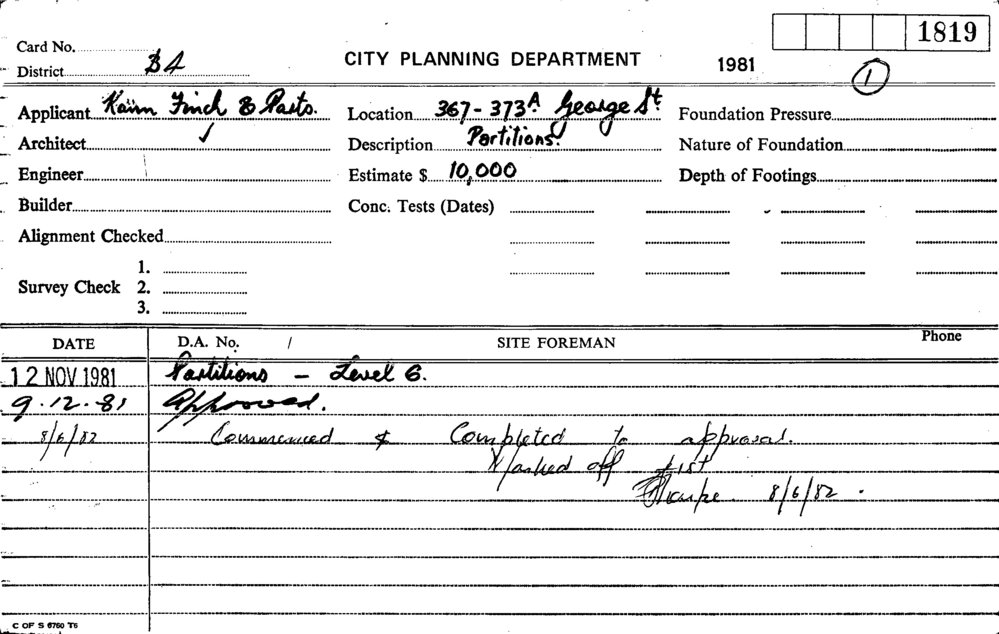 1819
Card No.
District B4
CITY PLANNING DEPARTMENT 1981
1
Applicant Kann Finch & Parts. Location 367-373A George St. Foundation Pressure
Architect Description Partitions. Nature of Foundation
Engineer Estimate $ 10,000 Depth of Footings
Builder Conc. Tests (Dates)
Alignment Checked
1.
Survey Check 2.
3.
DATE D.A. No. / SITE FOREMAN Phone
12 NOV 1981 Partitions - Level 6.
9.12.81 Approved.
8/6/82 Commenced & Completed to approval.
Marked off list
8/6/82.
C OF S 6760 T6